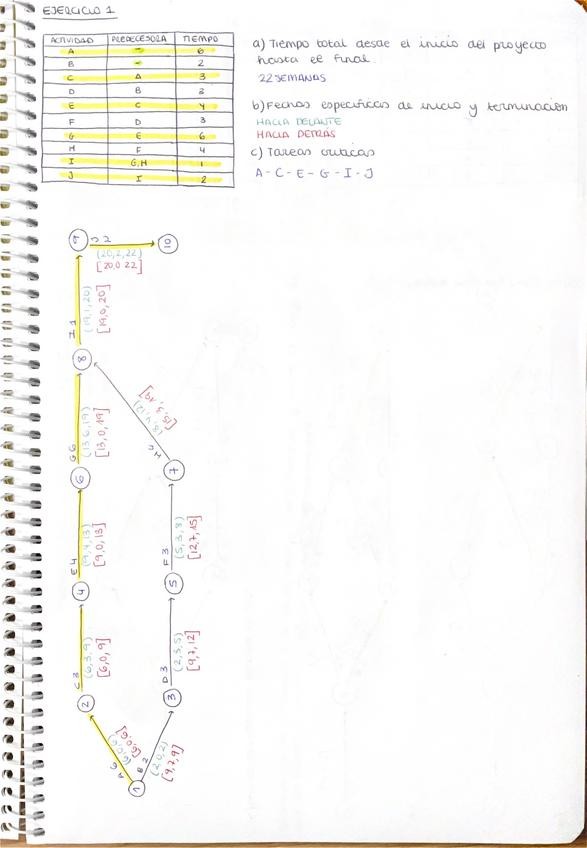 EJERCICIO 1
ACTIVIDAD PREDECESORA TIEMPO
A - 6
B - 2
C A 3
D B 3
E C 4
F D 3
G E 6
H F 4
I G,H 1
J I 2
a) Tiempo total desde el inicio del proyecto
hasta el final.
22 SEMANAS
b) Fechas específicas de inicio y terminación
HACIA DELANTE
HACIA DETRÁS
c) Tareas críticas
A - C - E - G - I - J
9
J 2
(20,2,22)
[20,0 22]
10
I 1
(19,1,20)
[19,0,20]
8
G 6
(13,6,19)
[13,0,19]
H 4
[15,3,19]
6
7
E 4
(9,4,13)
[9,0,13]
F 3
(5,3,8)
[12,7,15]
4
5
C 3
(6,3,9)
[6,0,9]
D 3
(2,3,5)
[9,7,12]
2
3
A 6
[0,0,6]
B 2
(2,0,2)
[9,7,9]
1